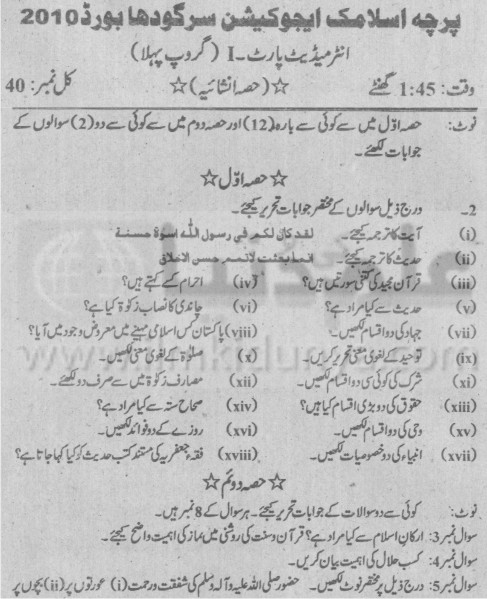 پرچہ اسلامک ایجوکیشن سرگودھا بورڈ 2010
انٹرمیڈیٹ پارٹ-I (گروپ پہلا)
وقت: 1:45 گھنٹے ☆(حصہ انشائیہ)☆ کل نمبر: 40
نوٹ: حصہ اوّل میں سے کوئی سے بارہ(12) اور حصہ دوم میں سے کوئی سے دو(2) سوالوں کے
جوابات لکھئے۔
☆حصہ اوّل☆
2۔ درج ذیل سوالوں کے مختصر جوابات تحریر کیجئے۔
(i) آیت کا ترجمہ کیجئے۔ لقد كان لكم في رسول الله اسوة حسنة
(ii) حدیث کا ترجمہ کیجئے۔ انما بعثت لاتمم حسن الاخلاق
(iii) قرآن مجید کی کتنی سورتیں ہیں؟ (iv) احرام کسے کہتے ہیں؟
(v) حدیث سے کیا مراد ہے؟ (vi) چاندی کا نصاب زکوٰۃ کیا ہے؟
(vii) جہاد کی دو اقسام لکھیں۔ (viii) پاکستان کس اسلامی مہینے میں معروض وجود میں آیا؟
(ix) توحید کے لغوی معنی تحریر کریں۔ (x) صلوٰۃ کے لغوی معنی لکھیں۔
(xi) شرک کی کوئی سی دو اقسام لکھیں۔ (xii) مصارف زکوٰۃ میں سے صرف دو لکھئے۔
(xiii) حقوق کی دو بڑی اقسام کیا ہیں؟ (xiv) صحاح ستہ سے کیا مراد ہے؟
(xv) وحی کی دو اقسام لکھیں۔ (xvi) روزے کے دو فوائد لکھیں۔
(xvii) انبیاء کی دو خصوصیات لکھیں۔ (xviii) فقہ جعفریہ کی مستند کتب حدیث کو کیا کہا جاتا ہے؟
☆حصہ دوئم☆
نوٹ: کوئی سے دو سوالات کے جوابات تحریر کیجئے۔ ہر سوال کے 8 نمبر ہیں۔
سوال نمبر 3: ارکان اسلام سے کیا مراد ہے؟ قرآن و سنت کی روشنی میں نماز کی اہمیت واضح کیجئے۔
سوال نمبر 4: کسب حلال کی اہمیت بیان کریں۔
سوال نمبر 5: درج ذیل پر مختصر نوٹ لکھیں۔ حضور صلی اللہ علیہ وآلہ وسلم کی شفقت و رحمت (i) عورتوں پر (ii) بچوں پر